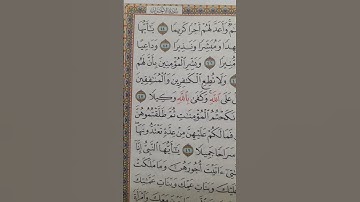 وَأَعَدَّ لَهُمْ أَجْرًا كَرِيمًا ٤٤ يَٰٓأَيُّهَا
هِدًا وَمُبَشِّرًا وَنَذِيرًا ٤٥ وَدَاعِيًا
يرًا ٤٦ وَبَشِّرِ ٱلْمُؤْمِنِينَ بِأَنَّ لَهُم
وَلَا تُطِعِ ٱلْكَٰفِرِينَ وَٱلْمُنَٰفِقِينَ
عَلَى ٱللَّهِ وَكَفَىٰ بِٱللَّهِ وَكِيلًا ٤٨
نَكَحْتُمُ ٱلْمُؤْمِنَٰتِ ثُمَّ طَلَّقْتُمُوهُنَّ
فَمَا لَكُمْ عَلَيْهِنَّ مِنْ عِدَّةٍ تَعْتَدُّونَهَا
سَرَاحًا جَمِيلًا ٤٩ يَٰٓأَيُّهَا ٱلنَّبِيُّ إِنَّآ
تِيٓ ءَاتَيْتَ أُجُورَهُنَّ وَمَا مَلَكَتْ
عَلَيْكَ وَبَنَاتِ عَمِّكَ وَبَنَاتِ عَمَّٰتِكَ